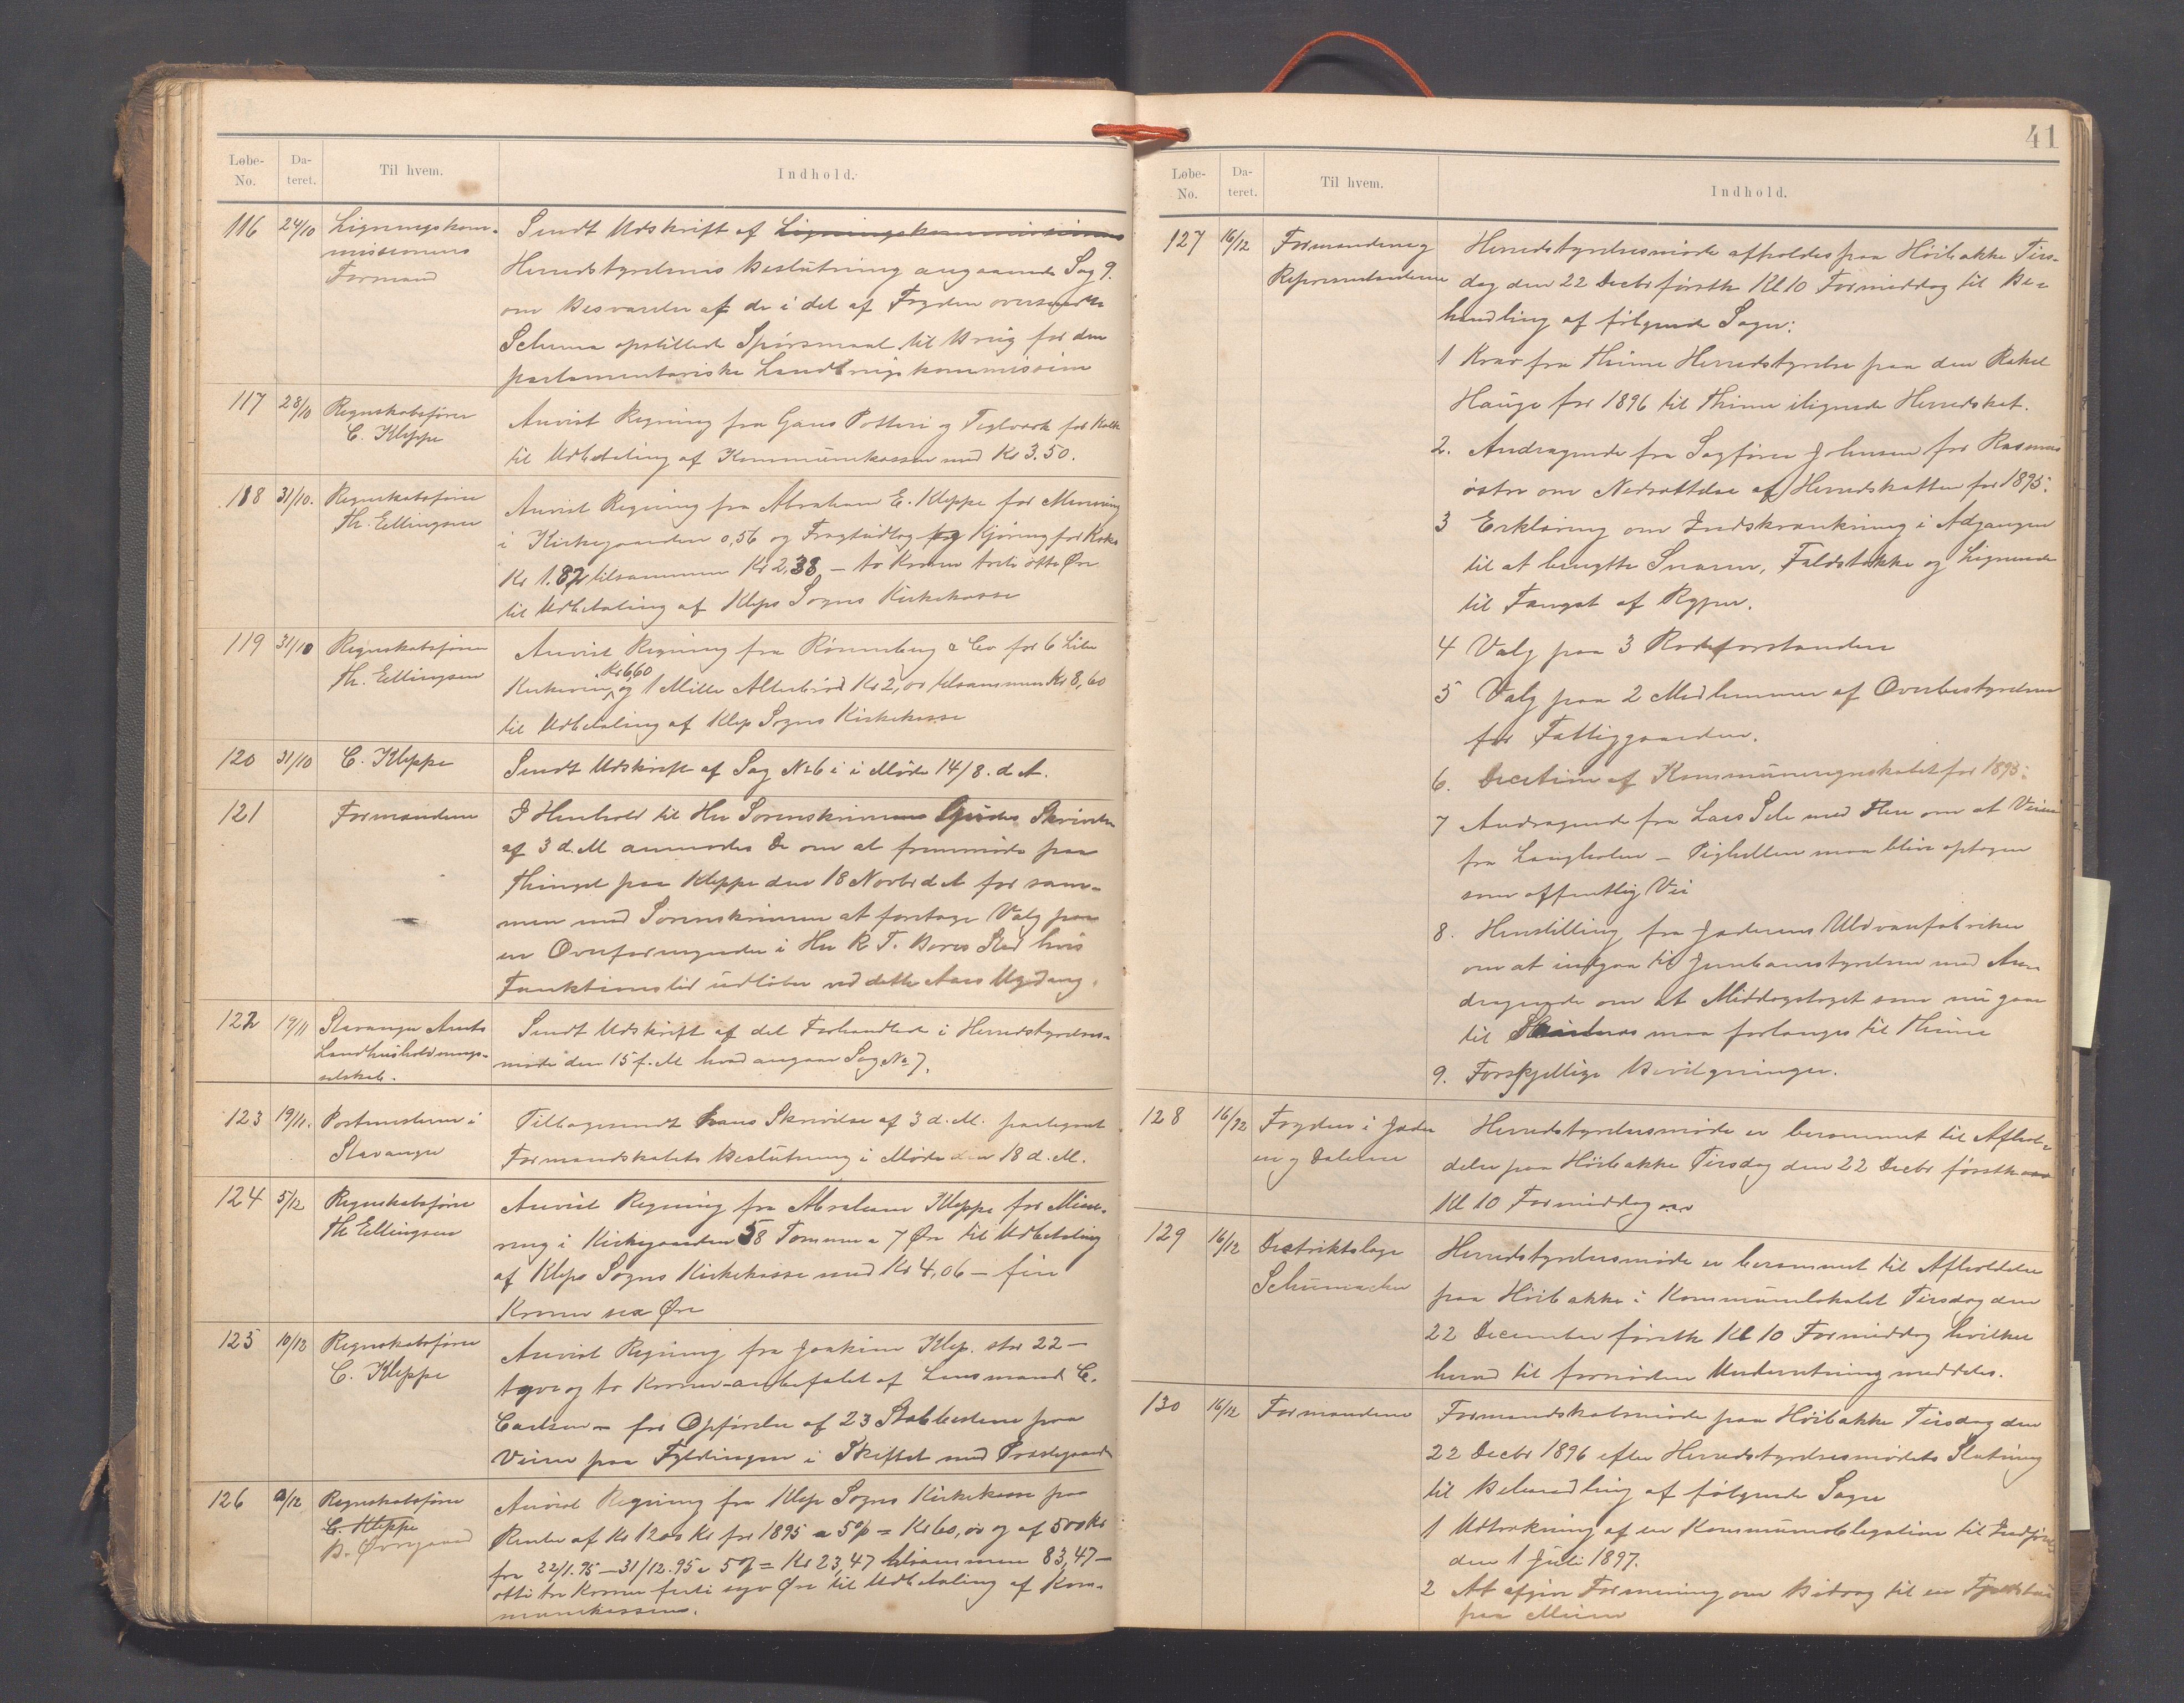 Løbe-No. Dateret. Til hvem. Indhold.
116 24/10 Ligningskom-
missionens
Formand
Sendt Udskrift af Ligningskommissionens
Herredstyrelsens Beslutning angaaende Sag 9.
om Besvarelse af de i det af Fogden oversendte
Schema opstillede Spørsmaal til Brug for den
parlamentariske Landbrugskommission
117 28/10 Regnskabsfører
C. Kleppe
Anvist Regning fra Gans Potteri og Teglverk for Kalk
til Udbetaling af Kommunekassen med Kr 3.50.
118 31/10. Regnskabsfører
Th. Ellingsen
Anvist Regning fra Abraham E. Kleppe for Minering
i Kirkegaarden 0,56 og Fragtudlæg og Kjøring for Koks
Kr 1.82 tilsammen Kr 2,38 – to Kroner treti otte Øre
til Udbetaling af Kleps Sogns Kirkekasse
119 31/10 Regnskabsfører
Th. Ellingsen
Anvist Regning fra Rønneberg & Co for 6 Liter
Kirkevin Kr 6,60 og 1 Mille Alterbrød Kr 2,00 tilsammen Kr 8,60
til Udbetaling af Klep Sogns Kirkekasse
120 31/10 C. Kleppe
Sendt Udskrift af Sag No 6 i i Møde 14/8. d. A.
121 Formændene
I Henhold til Hr Sorenskriverens Skrivelse
af 3 d. M anmodes De om at fremmøde paa
Thinget paa Kleppe den 18 Novbr d A for sam-
men med Sorenskriveren at foretage Valg paa
en Overformynder i Hr R T. Bores Sted hvis
Funktionstid udløber ved dette Aars Udgang.
122 19/11 Stavanger Amts
Landhusholdnings-
selskab.
Sendt Udskrift af det Forhandlede i Herredstyrelses-
møde den 15 f. M hvad angaar Sag No 7.
123 19/11. Postmesteren i
Stavanger
Tilbagesendt hans Skrivelse af 3 d. M. paategnet
Formandskabets Beslutning i Møde den 18 d. M.
124 5/12 Regnskabsfører
Th Ellingsen
Anvist Regning fra Abraham Kleppe for Mine-
ring i Kirkegaarden 58 Tommer a 7 Øre til Udbetaling
af Klep Sogns Kirkekasse med Kr 4,06 – fire
Kroner sex Øre
125 10/12 Regnskabsfører
C. Kleppe
Anvist Regning fra Joakim Klep. stor 22 –
tyve og to Kroner – anbefalet af Lensmand C.
Carlsen – for Opførelse af 23 Stabbestene paa
Veien paa Fyldingen i Skiftet med Præstegaarden
126 9/12 Regnskabsfører
C. Kleppe
B. Øvregaard
Anvist Regning fra Klep Sogns Kirkekasse paa
Renter af Kr 1200 Kr for 1895 a 5% = Kr 60,00 og af 500 Kr
fra 22/1.95 – 31/12.95 a 5% = Kr 23,47 tilsammen 83,47 –
otti tre Kroner firti syv Øre til Udbetaling af Kom-
munekassen.
41
Løbe-No. Dateret. Til hvem. Indhold.
127 16/12 Formændene og
Repræsentanterne
Herredstyrelsesmøde afholdes paa Høibakke Tirs-
dag den 22 Decbr førstk Kl 10 Formiddag til Be-
handling af følgende Sager:
1 Krav fra Thime Herredstyrelse paa den Rakel
Hauge for 1896 til Thime ilignede Herredskat.
2. Andragende fra Sagfører Johnsen for Rasmus
om Nedsættelse af Herredskatten for 1895.
3 Erklæring om Indskrænkning i Adgangen
til at benytte Snarer, Faldstokke og Lignende
til Fangst af Ryper.
4 Valg paa 3 Rodeforstandere
5 Valg paa 2 Medlemmer af Overbestyrelsen
for Fattiggaarden.
6. Decision af Kommuneregnskabet for 1895.
7 Andragende fra Lars Sele med Flere om at Veien
fra Langholen – Pighellen maa blive optagen
som offentlig Vei
8. Henstilling fra Jæderens Uldvarefabriker
om at indgaa til Jernbanestyrelsen med An-
dragende om at Middagstoget som nu gaar
til Sandnes maa forlænges til Thime
9. Forskjellige Bevilgninger.
128 16/12 Fogden i Jæder
en og Dalerne
Herredstyrelsesmøde er berammet til Afhol-
delse paa Høibakke Tirsdag den 22 Decbr førstk
Kl 10 Formiddag
129 16/12 Distriktslæge
Schumacher
Herredstyrelsesmøde er berammet til Afholdelse
paa Høibakke i Kommunelokalet Tirsdag den
22 December førstk Kl 10 Formiddag hvilket
herved til fornøden Underretning meddeles.
130 16/12 Formændene
Formandskabsmøde paa Høibakke Tirsdag den
22 Decbr 1896 efter Herredstyrelsesmødets Slutning
til Behandling af følgende Sager
1 Udtrækning af en Kommuneobligation til Indfrielse
den 1 Juli 1897.
2 At afgive Formening om Bidrag til en
paa